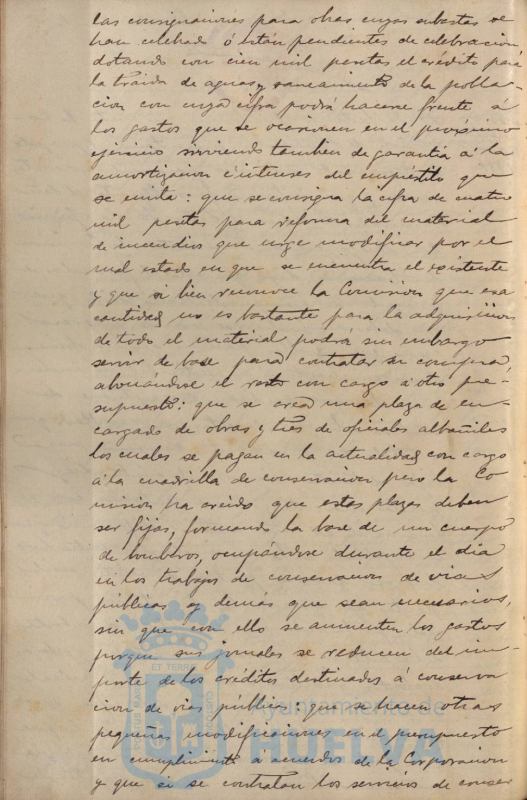 las consignaciones para obras cuyas subastas se
han celebrado ó están pendientes de celebración,
dotando con cien mil pesetas el crédito para
la traida de aguas y saneamiento de la pobla-
cion con cuya cifra podrá hacerse frente á
los gastos que se ocasionen en el proximo
ejercicio sirviendo tambien de garantia á la
amortizacion é intereses del empréstito que
se emita: que se consigna la cifra de cuatro
mil pesetas para reforma del material
de incendios que urge modificar por el
mal estado en que se encuentra el existente
y que si bien reconoce la Comision que esa
cantidad no es bastante para la adquisicion
de todo el material podrá sin embargo
servir de base para contratar su compra,
abonándose el resto con cargo á otro pre-
supuesto: que se crea una plaza de en-
cargado de obras y tres de oficiales albañiles
los cuales se pagan en la actualidad con cargo
á la cuadrilla de conservacion pero la Co
mision ha creido que estas plazas deben
ser fijas, formando la base de un cuerpo
de bomberos, ocupándose durante el dia
en los trabajos de conservacion de vias
públicas y demás que sean necesarios,
sin que con ello se aumenten los gastos
porque sus jornales se reducen del im-
porte de los créditos destinados á conserva
cion de vias públicas: que se hacen otras
pequeñas modificaciones en el presupuesto
en cumplimiento á acuerdos de la Corporacion
y que si se contratan los servicios de conser
PORTUS MARIS
ET TERRE
CUSTODIA
Ayuntamiento de
HUELVA